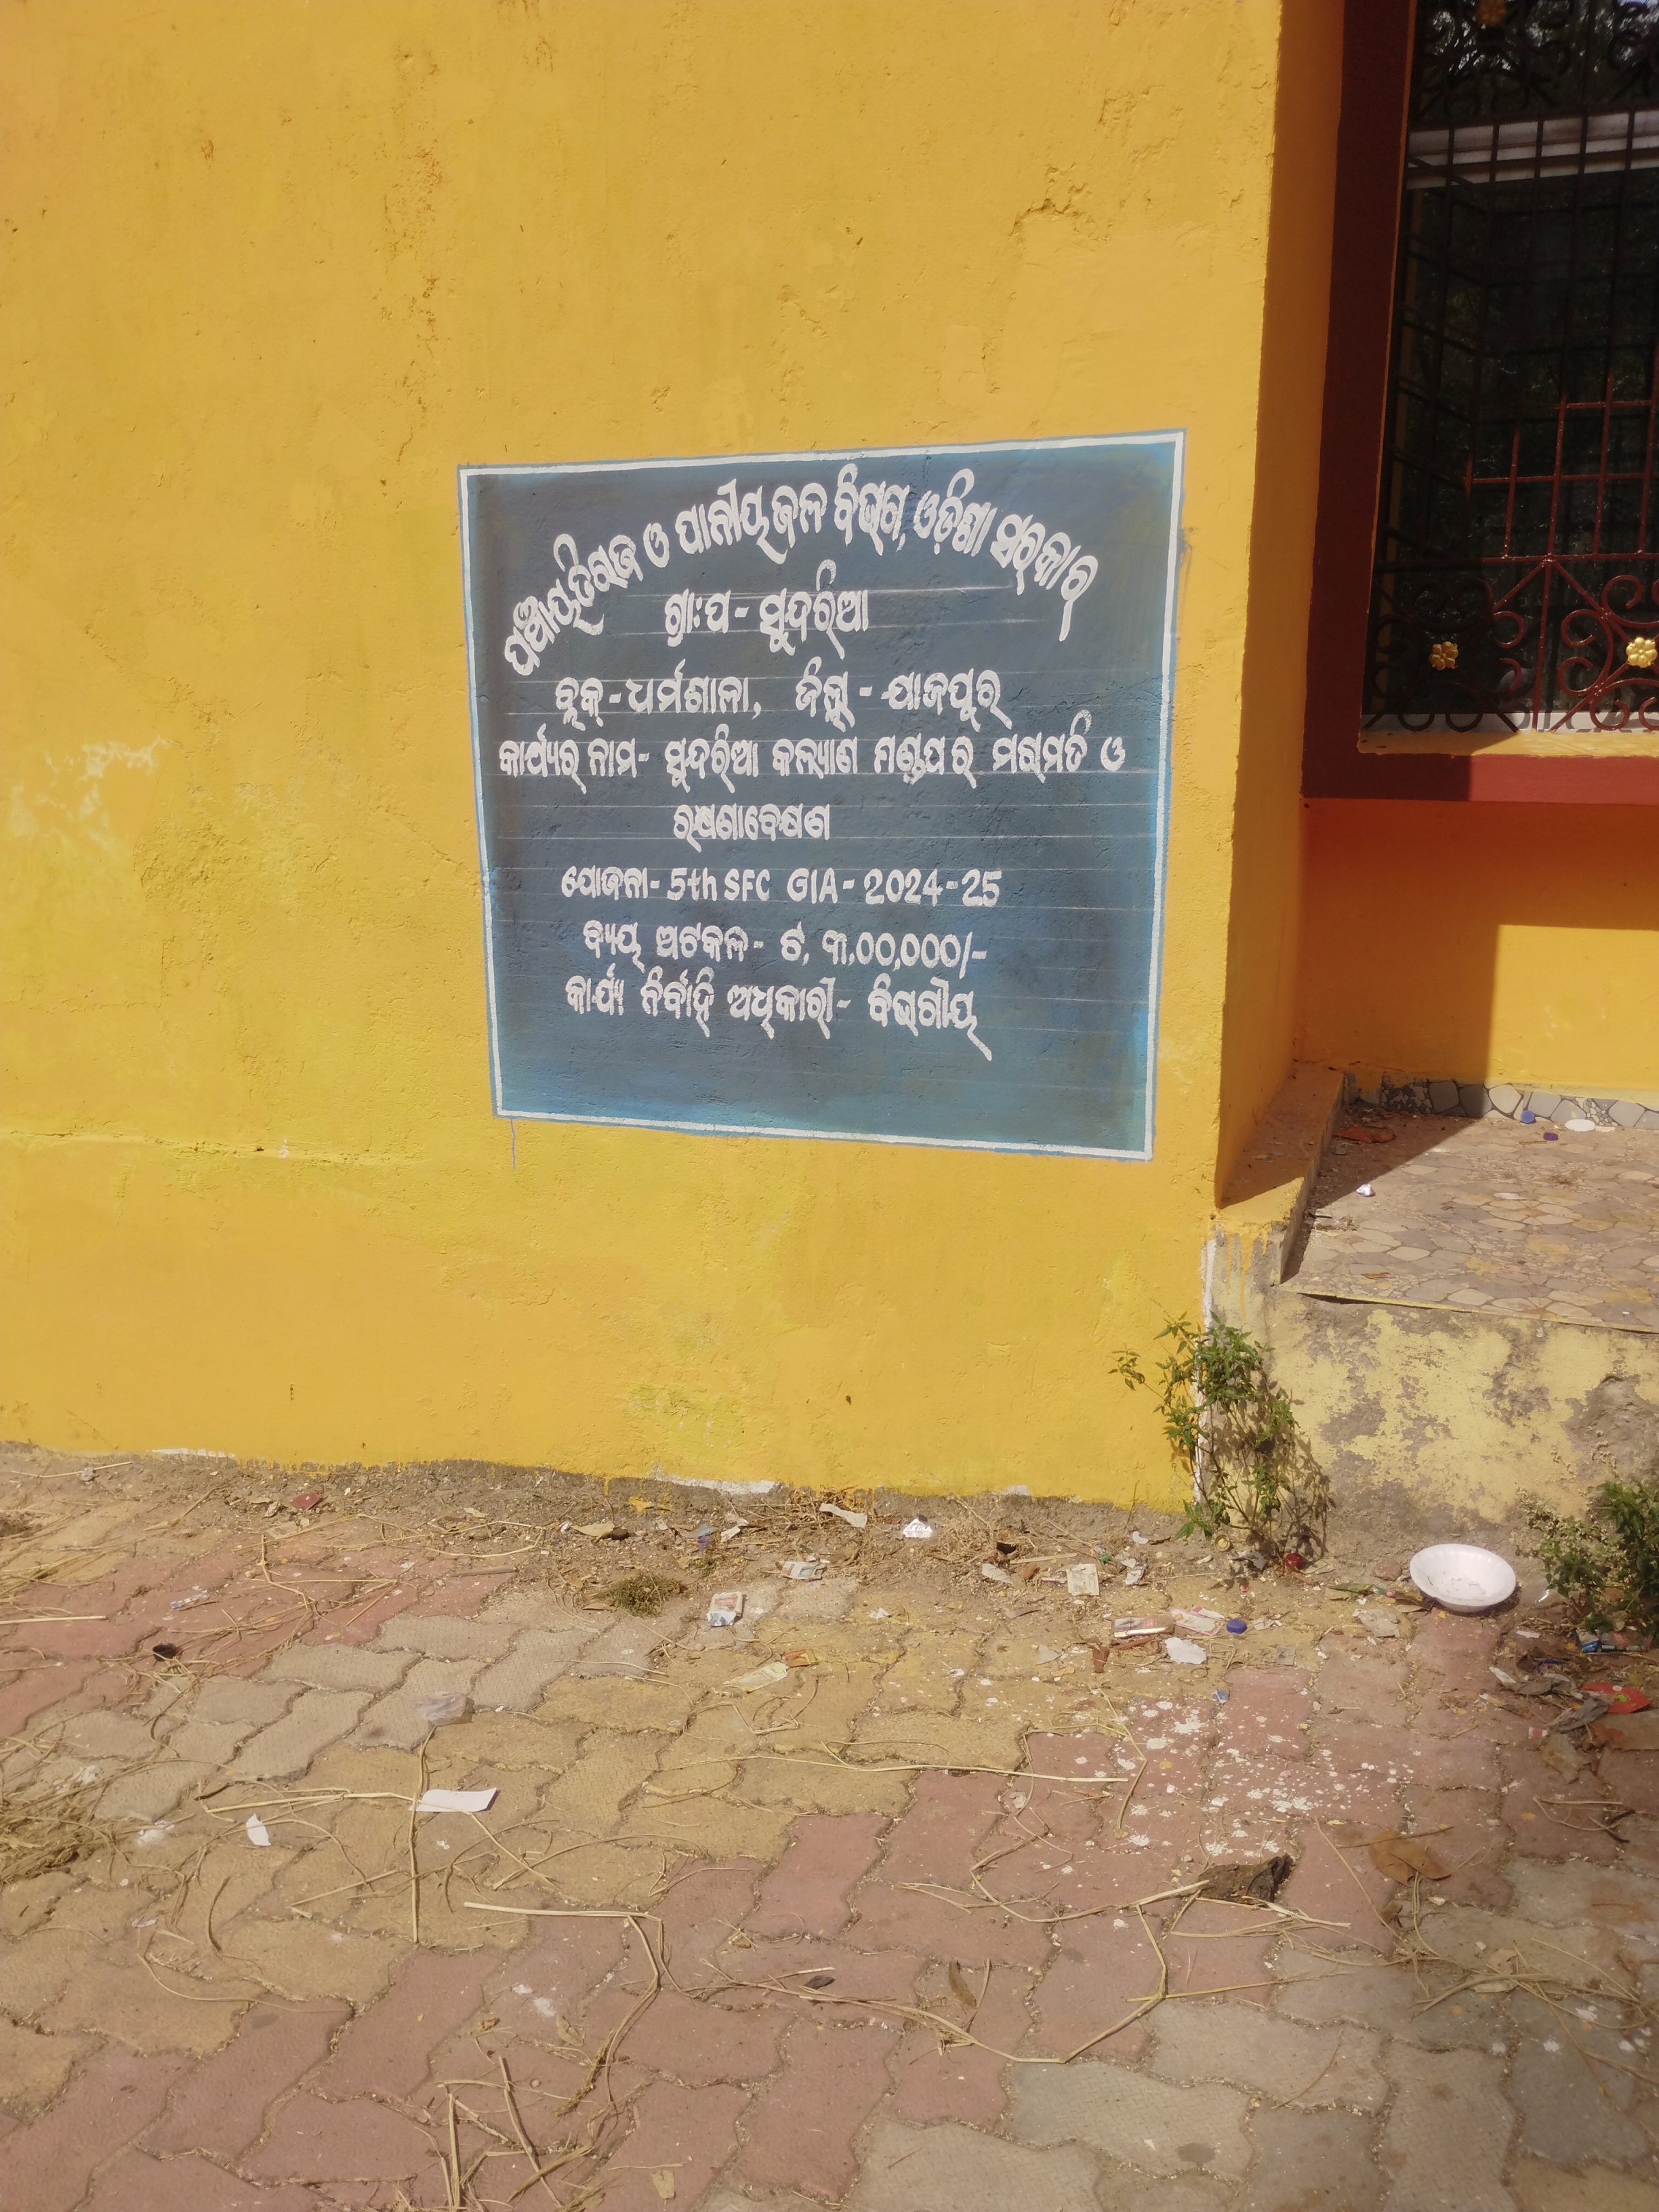 ପଞ୍ଚାୟତିରାଜ ଓ ପାନୀୟ ଜଳ ବିଭାଗ, ଓଡ଼ିଶା ସରକାର
ଗ୍ରା:ପ - ସୁନ୍ଦରିଆ
ବ୍ଲକ୍ - ଧର୍ମଶାଳା, ଜିଲ୍ଲା - ଯାଜପୁର
କାର୍ଯ୍ୟର ନାମ - ସୁନ୍ଦରିଆ କଲ୍ୟାଣ ମଣ୍ଡପ ର ମରାମତି ଓ
ରକ୍ଷଣାବେକ୍ଷଣ
ଯୋଜନା - 5th SFC GIA - 2024-25
ବ୍ୟୟ ଅଟକଳ - ଟ, ୩,00,000/-
କାର୍ଯ୍ୟ ନିର୍ବାହି ଅଧିକାରୀ - ବିଭାଗୀୟ